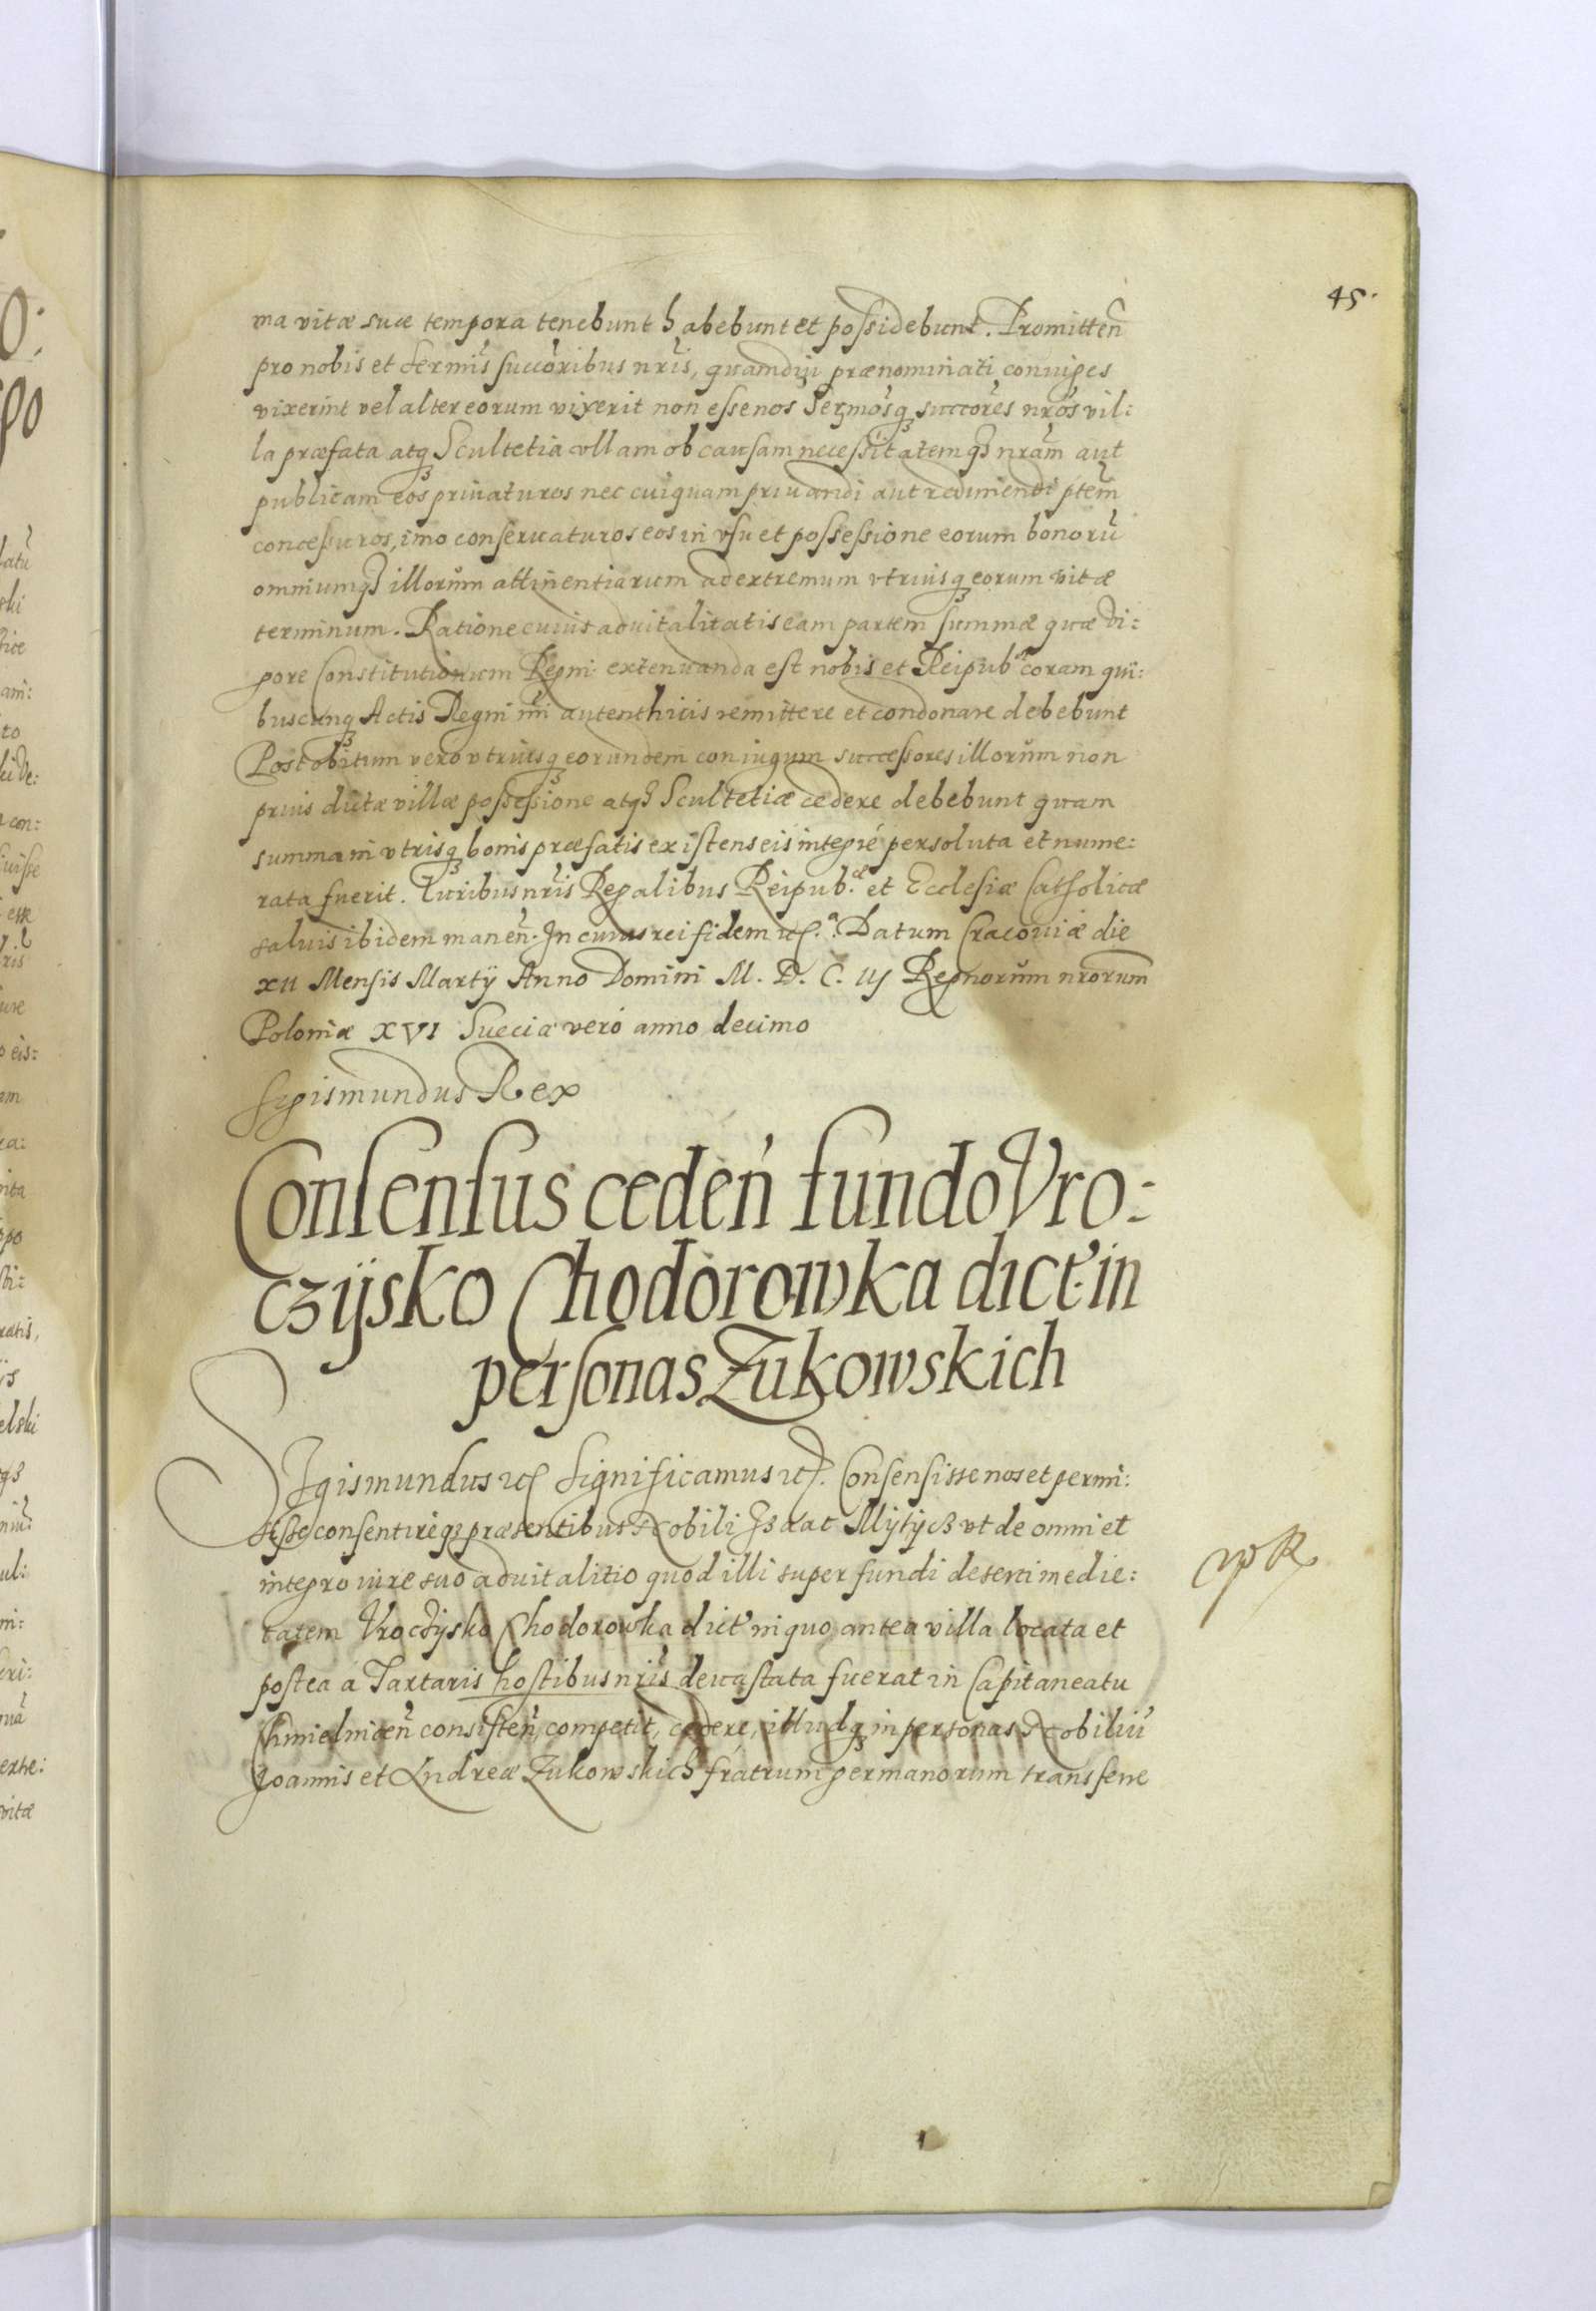 45.
ma vitæ suæ tempora tenebunt habebunt et possidebunt. Promitteñ
pro nobis et sermĩs succõribus nrĩs, quamdiu prænominati coniuges
vixerint vel alter eorum vixerit non esse nos Serm̃osq succorẽs nrõs vil:
la præfata atq Scultetia vllam ob causam necessitatem qȝ nrãm aut
publicam eos priuaturos nec cuiquam priuandi aut redimendi ptẽm
concessuros, imo conseruaturos eos in vsu et possessione eorum bonorũ
omniumqȝ illorum attinentiarum ad extremum vtriusq eorum vitæ
terminum. Ratione cuius aduitalitatis eam partem summæ quæ vi:
gore Constitutionum Regni extenuanda est nobis et Reipubcæ coram qui:
buscunq Actis Regni nri autenthicis remittere et condonare debebunt
Post obitum vero vtriusq eorundem coniugum successores illorum non
prius dictæ villæ possessione atqȝ Scultetiæ cedere debebunt quam
summa in vtrisq bonis præfatis existens eis integré persoluta et nume:
rata fuerit. Iuribus nrĩs Regalibus Reipub.æ et Ecclesiæ Catholicæ
saluis ibidem maneñ. In cuius rei fidem etc.a Datum Cracouiæ die
XII Mensis Martÿ Anno Domini M. D. C. iij Regnorum nrorum
Poloniæ XVI Sueciæ veró anno decimo
Sigismundus Rex
Consensus cedeń fundo Vro:
czÿsko Chodorowka dict in
personas Zukowskich
Sigismundus etc Significamus etc. Consensisse nos et permi:
sisse consentireqȝ præsentibus Nobili Isaac Mytycȝ vt de omni et
integro iure suo aduitalitio quod illi super fundi deserti medie:
tatem Vroczÿsko Chodorowka dict in quo antea villa locata et
postea á Tartaris hostibus nrĩs deuastata fuerat in Capitaneatu
Chmielniceñ consisteñ, competit, cedere, illudq in personas Nobiliũ
Joannis et Andreæ Zukowskich fratrum germanorum transferre